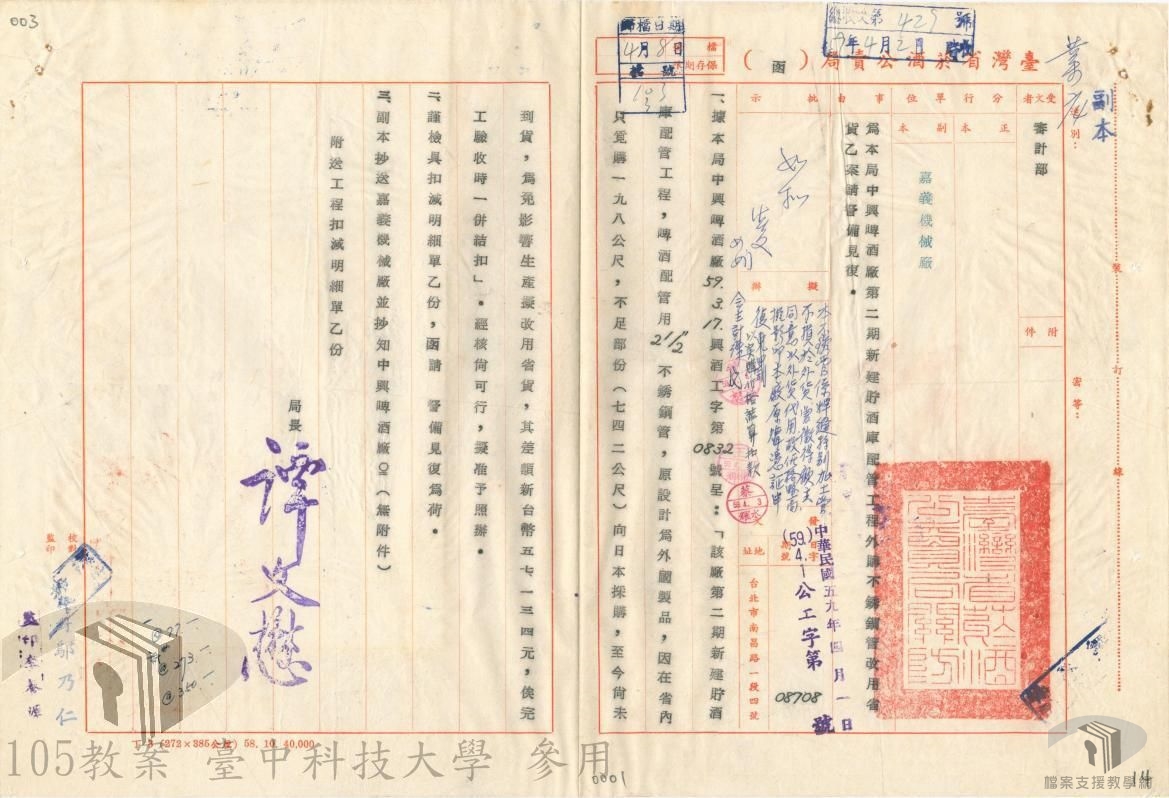 003
歸檔日期
4月8日
檔號
103
3
總收文第429號
59年4月2日
檔
保存期限
臺灣省菸酒公賣局（函）
副本
受文者
審計部
分行單位
正本
副本
嘉義機械廠
事由
為本局中興啤酒廠第二期新建貯酒庫配管工程外購不銹鋼管改用省
貨乙案請詧備見復。
附件
密等：
批示
如擬
擬辦
發文
日期
字號
中華民國五九年四月一日
(59.4.1公工字第08708號
地址
台北市南昌路一段四號
一、據本局中興啤酒廠59.3.17.興酒工字第0832號呈：「該廠第二期新建貯酒
庫配管工程，啤酒配管用2 1/2"不銹鋼管，原設計為外國製品，因在省內
只覓購一九八公尺，不足部份（七四二公尺）向日本採購，至今尚未
到貨，為免影響生產擬改用省貨，其差額新台幣五七、一三四元，俟完
工驗收時一併結扣」。經核尚可行，擬准予照辦。
二、謹檢具扣減明細單乙份，函請　詧備見復為荷。
三、副本抄送嘉義機械廠並抄知中興啤酒廠（無附件）
附送工程扣減明細單乙份
局長 譚文懋
校對
監印
鄔乃仁
臺灣省菸酒公賣局關防
裝訂線
1-3 (272×385公厘) 58. 10. 40,000
105教案 臺中科技大學 參用
0001
14
檔案支援教學網